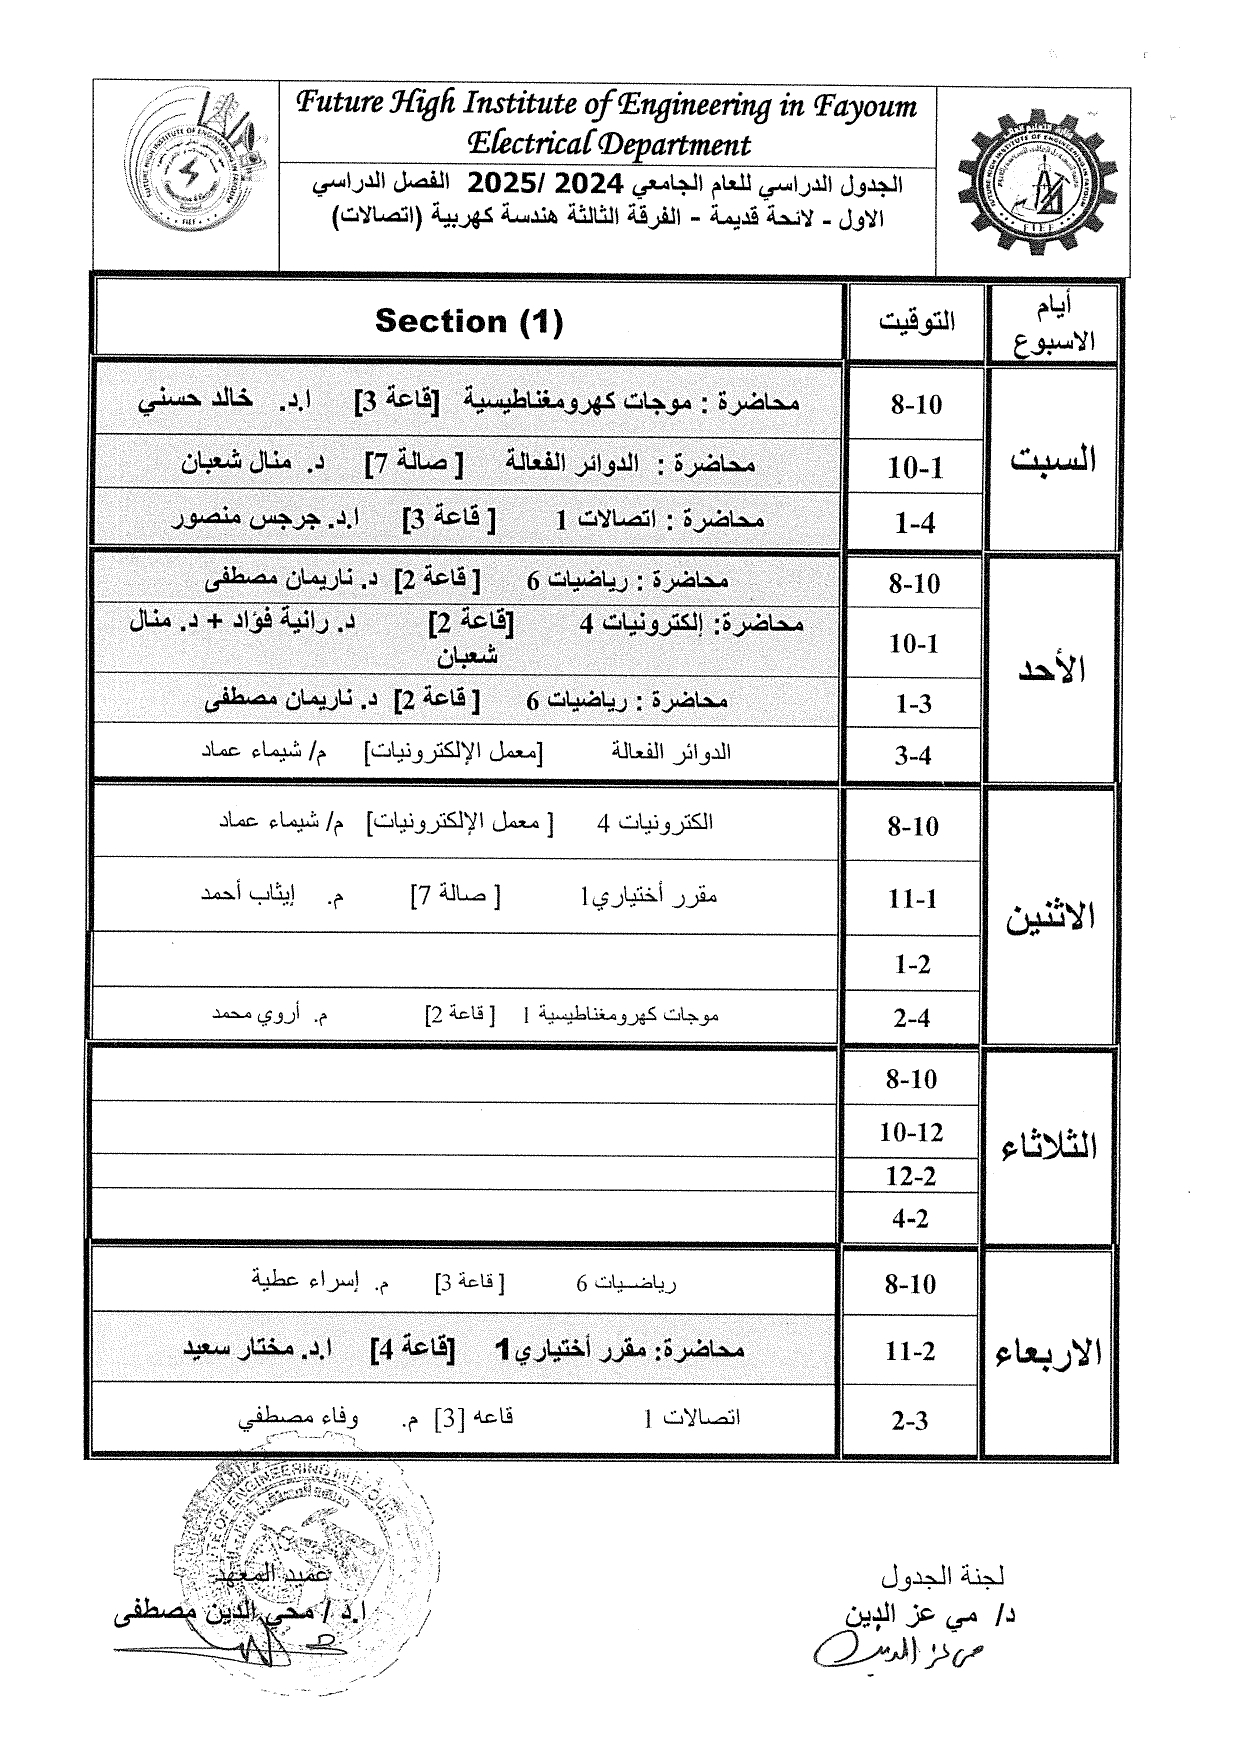 Future High Institute of Engineering in Fayoum
Electrical Department
الجدول الدراسي للعام الجامعي 2024 /2025 الفصل الدراسي
الاول - لائحة قديمة - الفرقة الثالثة هندسة كهربية (اتصالات)
أيام الاسبوع التوقيت Section (1)
السبت
8-10 محاضرة : موجات كهرومغناطيسية [قاعة 3] ا.د. خالد حسني
10-1 محاضرة : الدوائر الفعالة [ صالة 7] د. منال شعبان
1-4 محاضرة : اتصالات 1 [ قاعة 3] ا.د. جرجس منصور
الأحد
8-10 محاضرة : رياضيات 6 [ قاعة 2] د. ناريمان مصطفى
10-1 محاضرة: إلكترونيات 4 [قاعة 2] د. رانية فؤاد + د. منال
شعبان
1-3 محاضرة : رياضيات 6 [ قاعة 2] د. ناريمان مصطفى
3-4 الدوائر الفعالة [معمل الإلكترونيات] م/ شيماء عماد
الاثنين
8-10 الكترونيات 4 [ معمل الإلكترونيات] م/ شيماء عماد
11-1 مقرر أختياري1 [ صالة 7] م. إيثاب أحمد
1-2
2-4 موجات كهرومغناطيسية 1 [ قاعة 2] م. أروي محمد
الثلاثاء
8-10
10-12
12-2
4-2
الاربعاء
8-10 رياضيات 6 [ قاعة 3] م. إسراء عطية
11-2 محاضرة: مقرر أختياري1 [قاعة 4] ا.د. مختار سعيد
2-3 اتصالات 1 قاعه [3] م. وفاء مصطفي
لجنة الجدول
د/ مي عز الدين
مي عز الدين
عميد المعهد
ا.د / محي الدين مصطفى